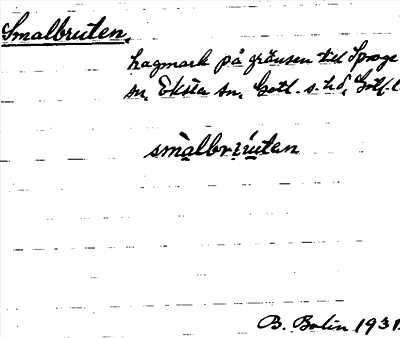 Smalbruten.
hagmark på gränsen till Sproge
sn, Eksta sn, Gotl. s. hd, Gotl. l
smàlbrúten
B. Bolin 1931.